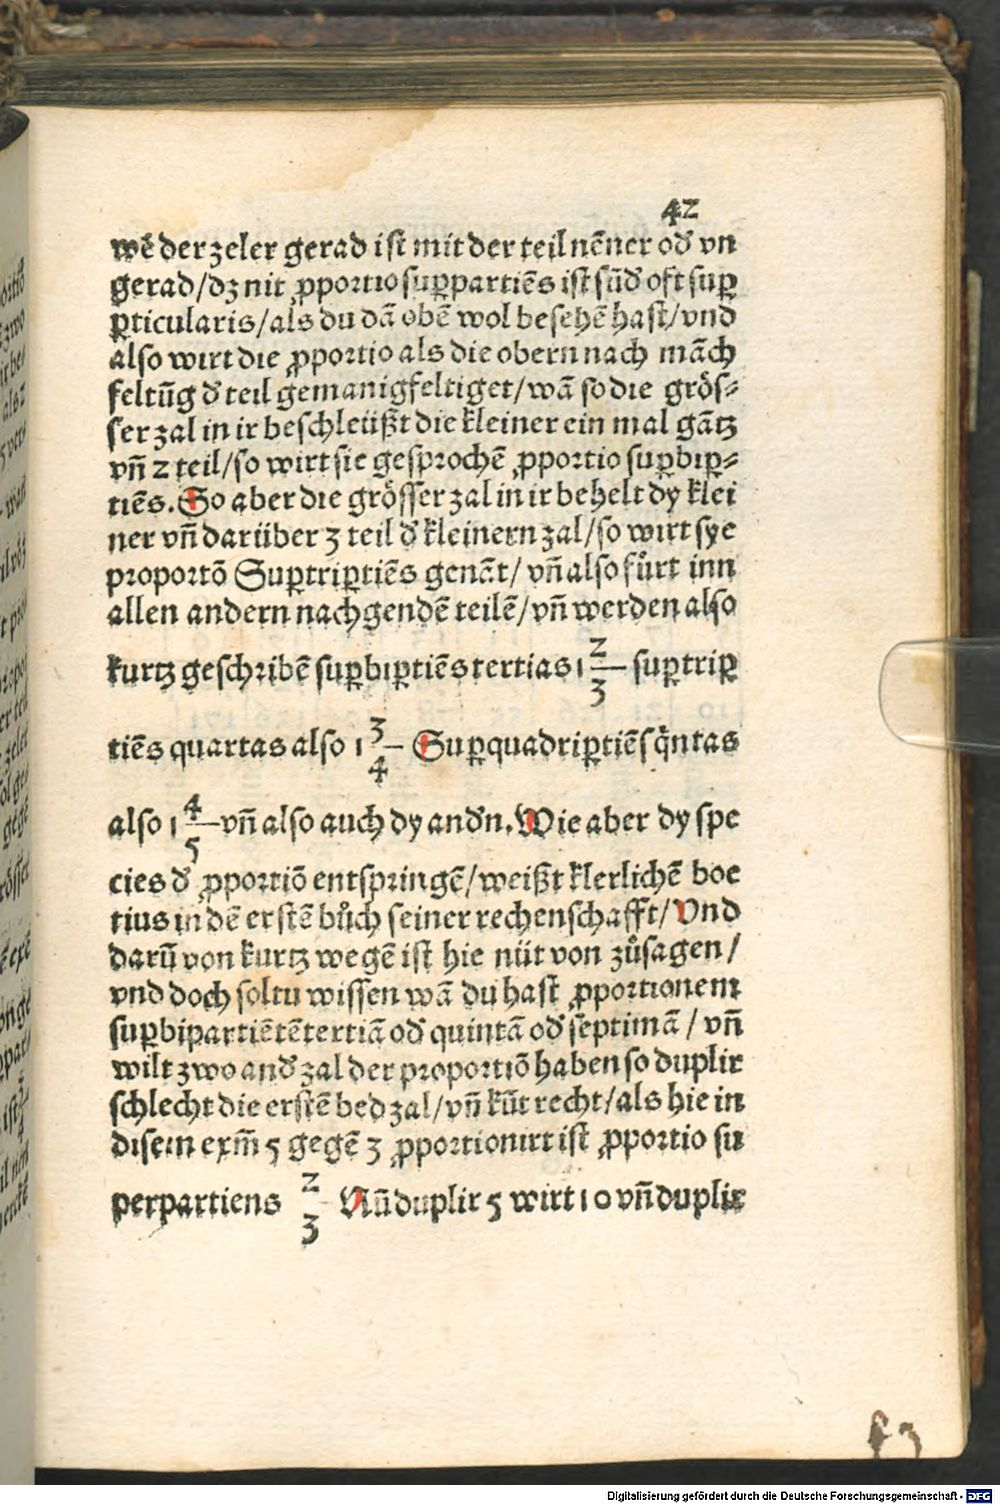 42
wē der zeler gerad ist mit der teil nēner od̄ vn
gerad/dz nit ꝓportio suꝑpartiēs ist sūd̄ oft suꝑ
ꝑticularis/als du dā obē wol besehē hast/vnd
also wirt die ꝓportio als die obern nach māch
feltūg d̄ teil gemanigfeltiget/wā so die grös⸗
ser zal in ir beschleüßt die kleiner ein mal gātz
vn̄ 2 teil/so wirt sie gesprochē ꝓportio suꝑbiꝑ⸗
tiēs. So aber die grösser zal in ir behelt dy klei
ner vn̄ darüber 3 teil d̄ kleinern zal/so wirt sye
proportō Suꝑtriꝑtiēs genāt/ vn̄ also fůrt inn
allen andern nachgendē teilē/vn̄ werden also
kurtz geschribē suꝑbiꝑtiēs tertias 1 2/3 suꝑtriꝑ
tiēs quartas also 1 3/4 Suꝑquadriꝑtiēs q̄ntas
also 1 4/5 vn̄ also auch dy and̄n. Wie aber dy spe
cies d̄ ꝓportiō entspringē/weißt klerlichē boe
tius in dē erstē bůch seiner rechenschafft/Vnd
darū von kurtz wegē ist hie nüt von zůsagen/
vnd doch soltu wissen wā du hast ꝓportionem
suꝑbipartiētē tertiā od̄ quintā od̄ septimā/vn̄
wilt zwo and̄ zal der proportiō haben so duplir
schlecht die erstē bed zal/vn̄ kūt recht/als hie in
disem exm̄ 5 gegē 3 ꝓportionirt ist ꝓportio su
perpartiens 2/3 Nū duplir 5 wirt 10 vn̄ duplir
f 3
Digitalisierung gefördert durch die Deutsche Forschungsgemeinschaft - DFG